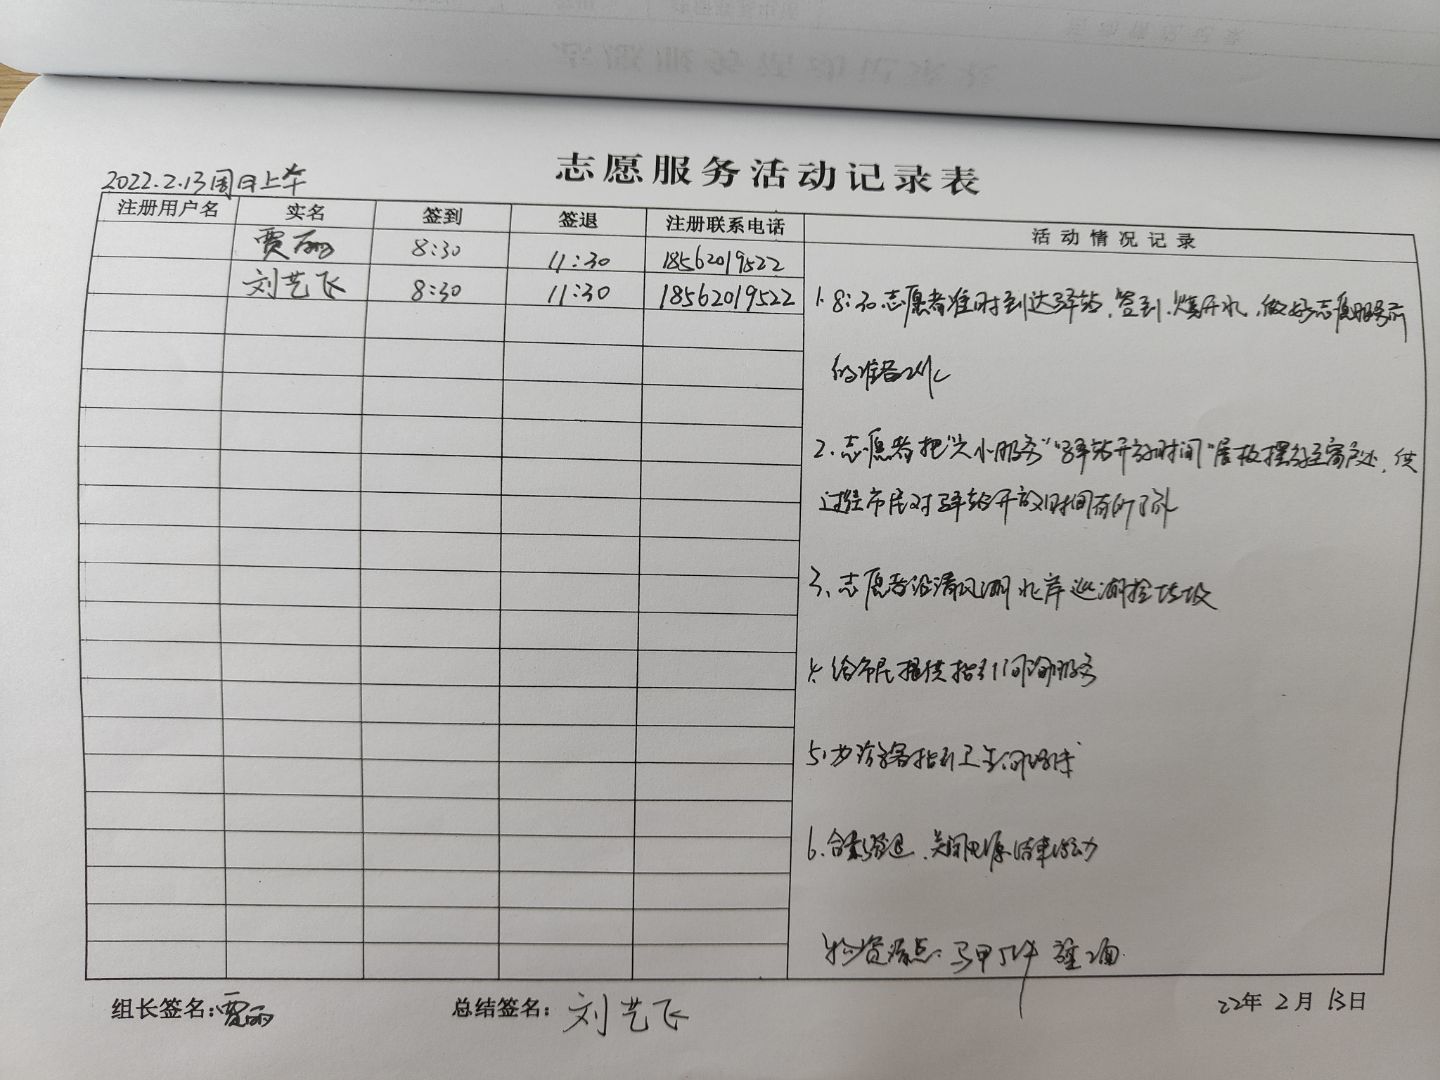 志愿服务活动记录表
2022.2.13周日上午
注册用户名 实名 签到 签退 注册联系电话 活动情况记录
贾丽 8:30 11:30 18562019522
刘艺飞 8:30 11:30 18562019522
1. 8:30志愿者准时到达驿站,签到,烧开水,做好志愿服务前
的准备工作
2.志愿者把"尖小服务""驿站开放时间"展板摆放至窗户处,供
过往市民对驿站开放时间有所了解
3、志愿者沿清风湖北岸巡湖捡垃圾
4.给市民提供指引问询服务
5、为游客指引卫生间
6.合影签退,关闭电源结束活动
物资清点:马甲5件
组长签名:贾丽 总结签名:刘艺飞 22年 2月 13日